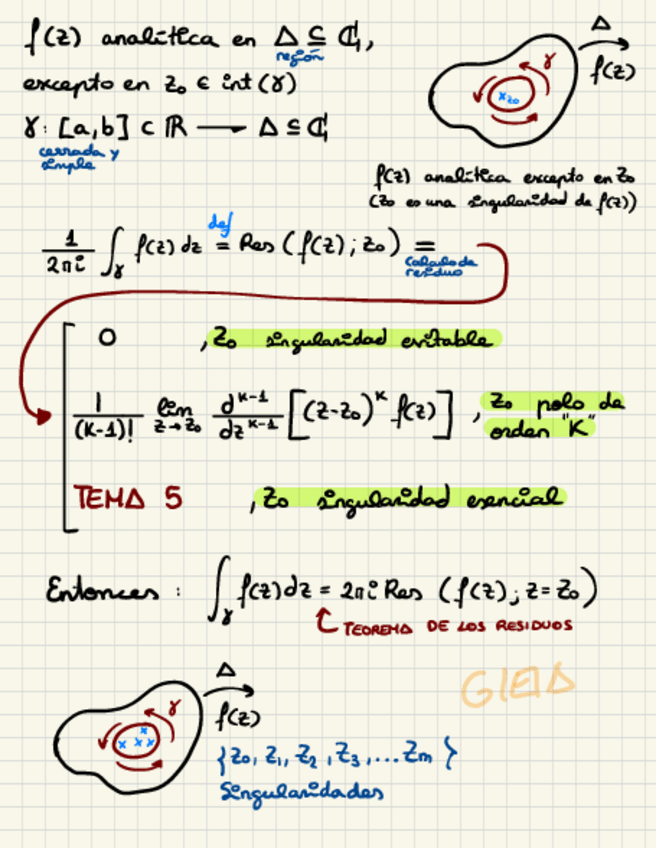 f(z) analítica en Δ ⊆ ℂ,
región
excepto en z₀ ∈ int(γ)
γ: [a,b] ⊂ ℝ ⟶ Δ ⊆ ℂ
cerrada y
simple
Δ
f(z)
γ
x z₀
f(z) analítica excepto en z₀
(z₀ es una singularidad de f(z))
def
1/(2πi) ∫_γ f(z) dz = Res (f(z); z₀) =
calculo de
residuo
0 , z₀ singularidad evitable
1/(K-1)! lim_{z→z₀} d^{K-1}/dz^{K-1} [(z-z₀)^K f(z)] , z₀ polo de
orden "K"
TEMA 5 , z₀ singularidad esencial
Entonces : ∫_γ f(z)dz = 2πi Res (f(z); z=z₀)
TEOREMA DE LOS RESIDUOS
GIEIA
Δ
γ
f(z)
x x x x
{z₀, z₁, z₂, z₃, ... zm}
Singularidades